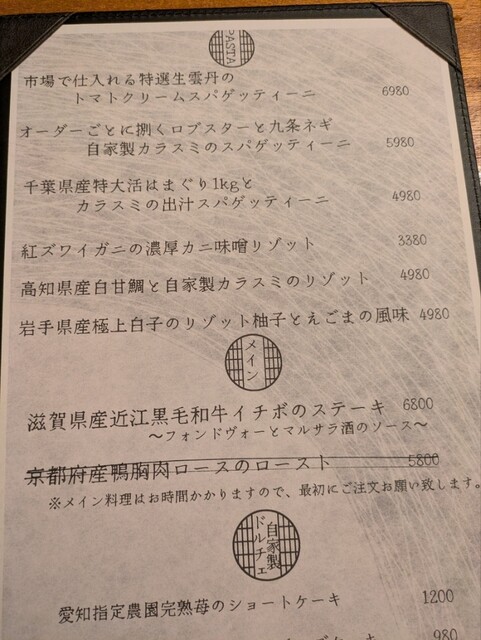 PASTA
市場で仕入れる特選生雲丹の
トマトクリームスパゲッティーニ 6980
オーダーごとに捌くロブスターと九条ネギ
自家製カラスミのスパゲッティーニ 5980
千葉県産特大活はまぐり1kgと
カラスミの出汁スパゲッティーニ 4980
紅ズワイガニの濃厚カニ味噌リゾット 3380
高知県産白甘鯛と自家製カラスミのリゾット 4980
岩手県産極上白子のリゾット柚子とえごまの風味 4980
メイン
滋賀県産近江黒毛和牛イチボのステーキ 6800
〜フォンドヴォーとマルサラ酒のソース〜
京都府産鴨胸肉ロースのロースト 5800
※メイン料理はお時間かかりますので、最初にご注文お願い致します。
自家製
ドルチェ
愛知指定農園完熟苺のショートケーキ 1200
980